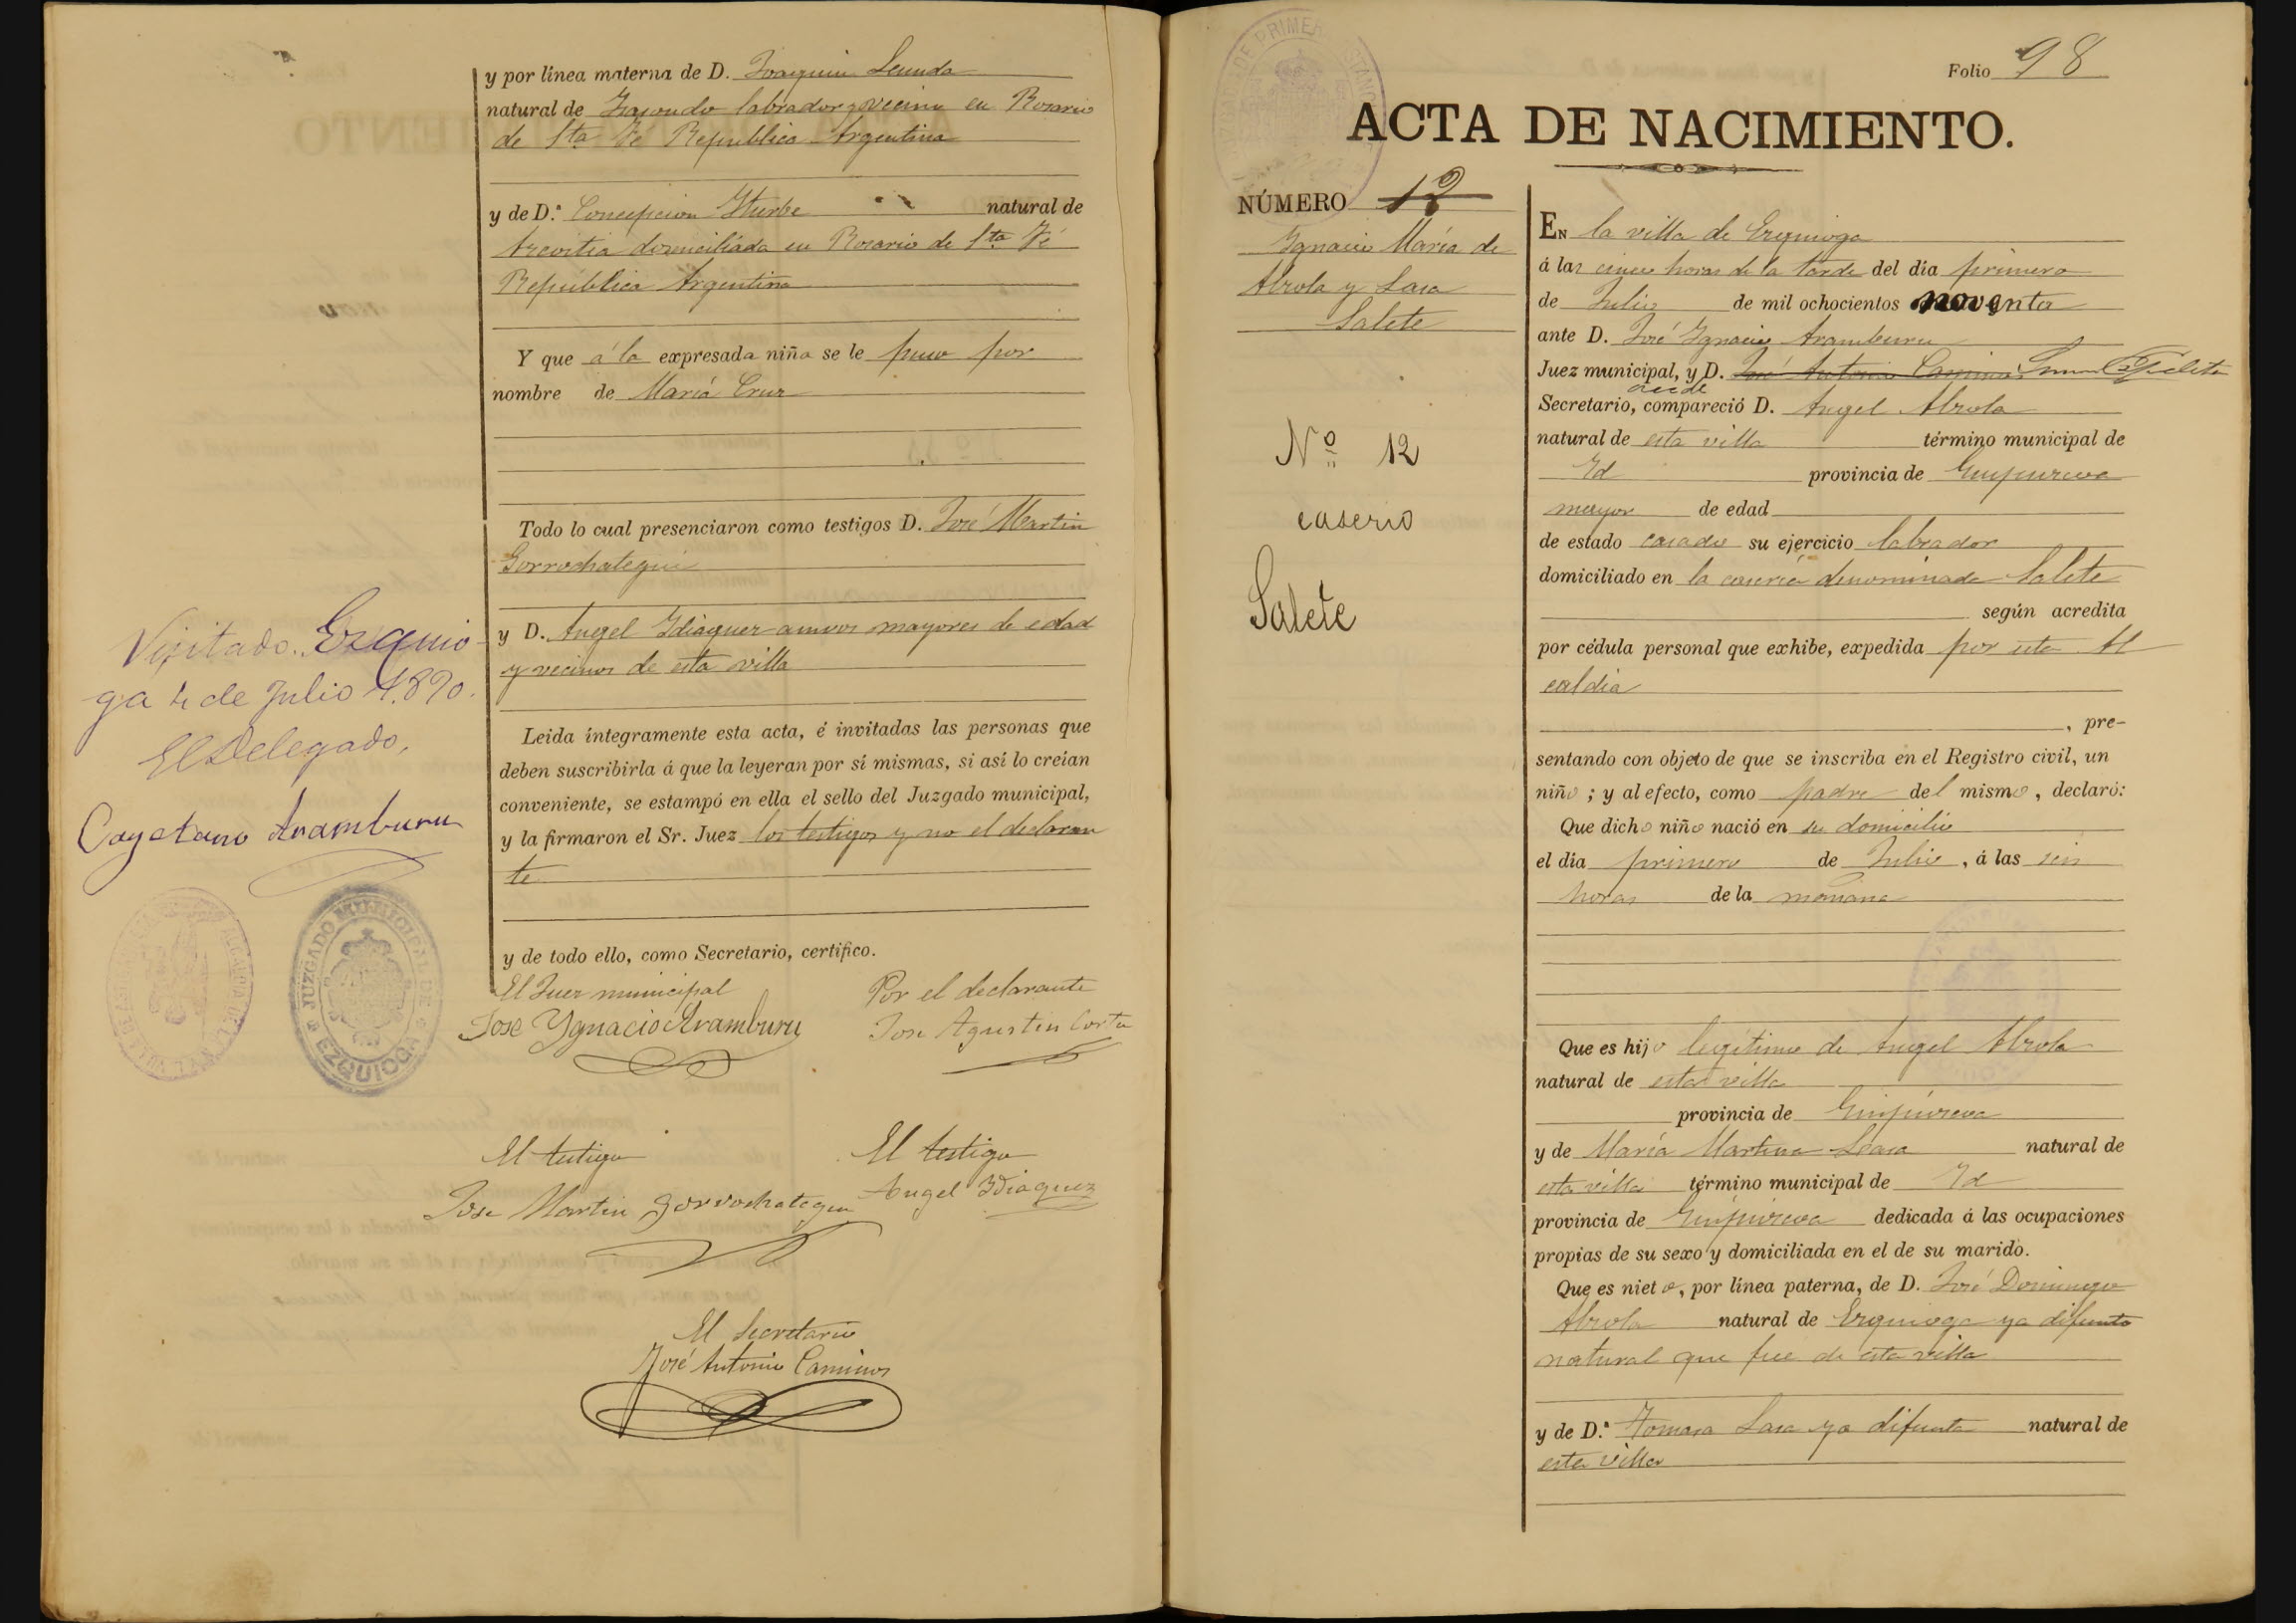 y por línea materna de D. Joaquin Lecuda
natural de labrador y vecino en Rosario
de Sta Fé Republica Argentina
y de D.ª Concepcion Yturbe natural de
Arevitia domiciliada en Rosario de Sta Fé
República Argentina
Y que á la expresada niña se le puso por
nombre de María Cruz
Todo lo cual presenciaron como testigos D. José Martin
Gorrochategui
y D. Angel Ydiaquez amvos mayores de edad
y vecinos de esta villa
Leida íntegramente esta acta, é invitadas las personas que
deben suscribirla á que la leyeran por sí mismas, si así lo creían
conveniente, se estampó en ella el sello del Juzgado municipal,
y la firmaron el Sr. Juez los testigos y no el declaran
te
y de todo ello, como Secretario, certifico.
El Juez municipal
Jose Ygnacio Aramburu
Por el declarante
Jose Agustin Corta
El testigo
Jose Martin Gorrochategui
El testigo
Angel Ydiaquez
El Secretario
José Antonio Caminos
Visitado. Ezquio-
ga 4 de Julio 1.890.
El Delegado,
Cayetano Aramburu
JUZGADO MUNICIPAL DE
EZQUIOGA
Folio 98
ACTA DE NACIMIENTO.
NÚMERO 12
Ygnacio María de
Alrola y Lasa
Salete
Nº 12
caserio
Salete
En la villa de Ezquioga
á las cinco horas de la tarde del dia primero
de Julio de mil ochocientos noventa
ante D. José Ygnacio Aramburu
Juez municipal, y D. José Antonio Caminos
Secretario, compareció D. Angel Alrola
natural de esta villa término municipal de
Yd provincia de Guipuzcoa
mayor de edad
de estado casado su ejercicio labrador
domiciliado en la caseria denominada Salete
según acredita
por cédula personal que exhibe, expedida por esta Al
caldia
, pre-
sentando con objeto de que se inscriba en el Registro civil, un
niño ; y al efecto, como padre del mismo , declaró:
Que dicho niño nació en su domicilio
el dia primero de Julio , á las seis
horas de la mañana
Que es hijo legitimo de Angel Alrola
natural de esta villa
provincia de Guipúzcoa
y de María Martina Lasa natural de
esta villa término municipal de Yd
provincia de Guipúzcoa dedicada á las ocupaciones
propias de su sexo y domiciliada en el de su marido.
Que es nieto, por línea paterna, de D. José Domingo
Alrola natural de Ezquioga ya difunto
natural que fue de esta villa
y de D.ª Tomasa Lasa ya difunta natural de
esta villa